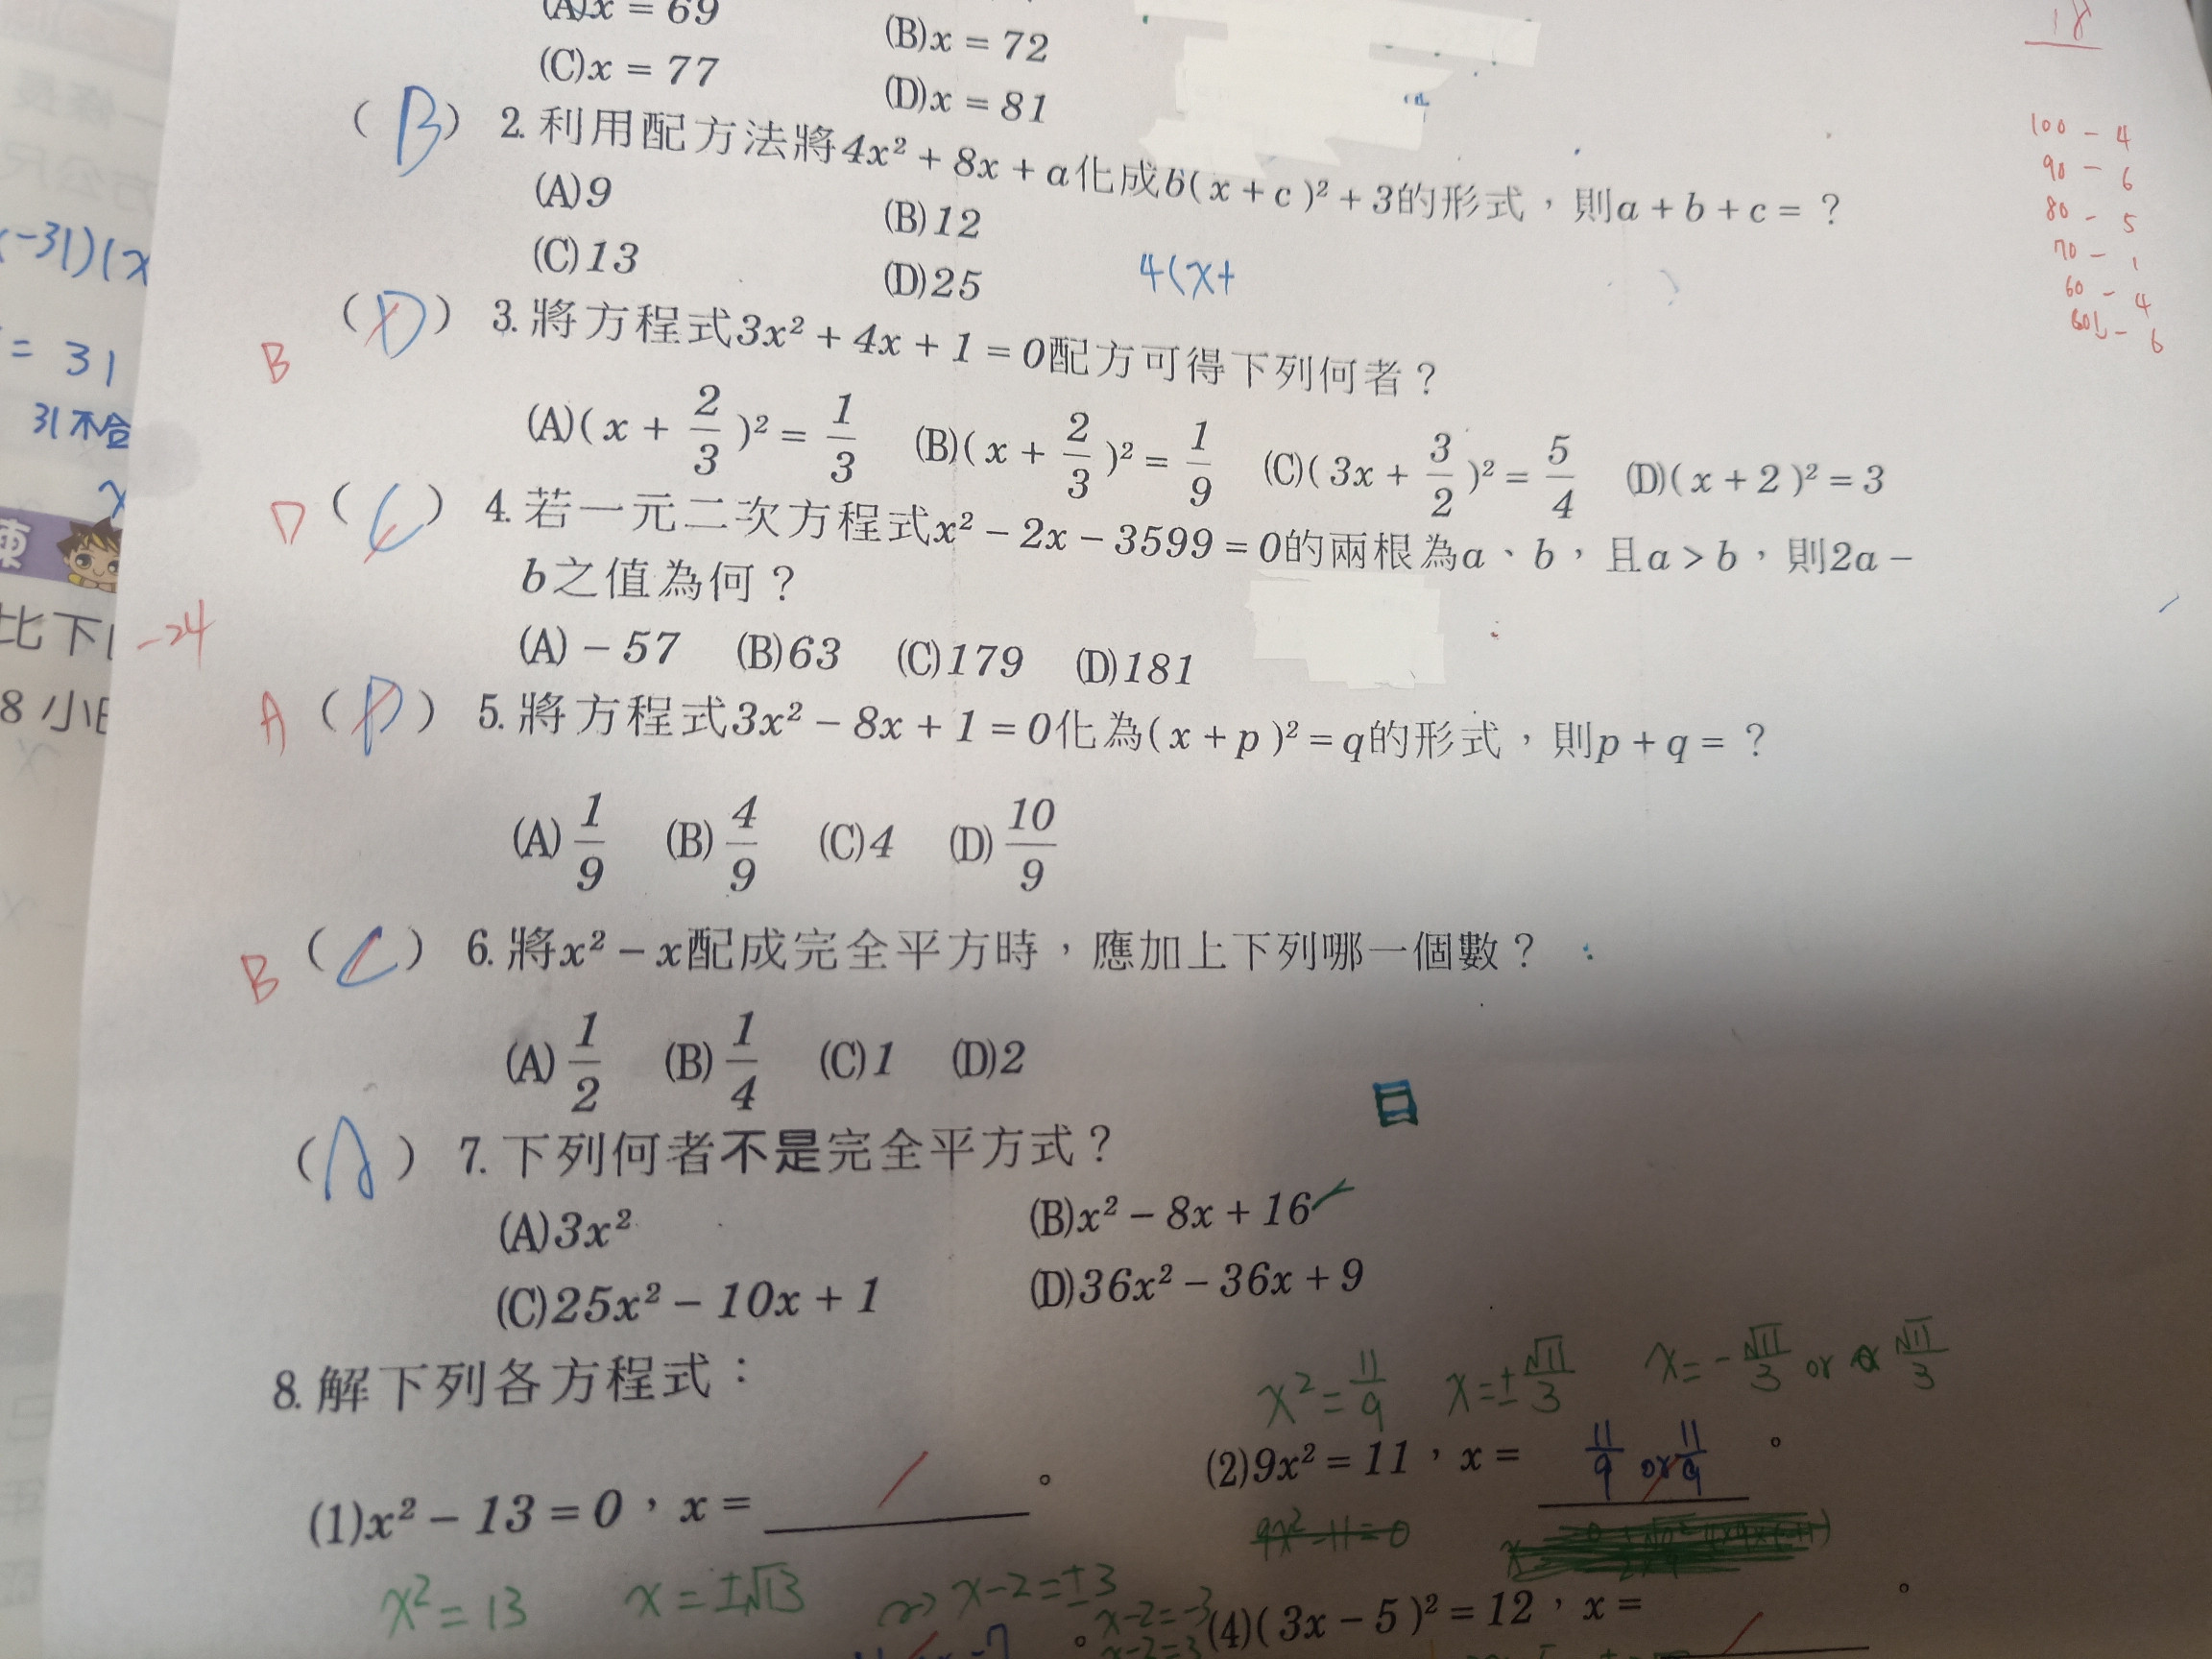 (A)x = 69
(B)x = 72
(C)x = 77
(D)x = 81
18
100 - 4
90 - 6
80 - 5
70 - 1
60 - 4
60↓ - 6
( B ) 2. 利用配方法將4x² + 8x + a化成b( x + c )² + 3的形式，則a + b + c = ？
(A)9
(B)12
(C)13
(D)25
4(x+
B ( D ) 3. 將方程式3x² + 4x + 1 = 0配方可得下列何者？
(A)( x + 2/3 )² = 1/3 (B)( x + 2/3 )² = 1/9 (C)( 3x + 3/2 )² = 5/4 (D)( x + 2 )² = 3
D ( C ) 4. 若一元二次方程式x² - 2x - 3599 = 0的兩根為a、b，且a > b，則2a -
b之值為何？
(A) - 57 (B)63 (C)179 (D)181
-24
A ( D ) 5. 將方程式3x² - 8x + 1 = 0化為( x + p )² = q的形式，則p + q = ？
(A) 1/9 (B) 4/9 (C)4 (D) 10/9
B ( C ) 6. 將x² - x配成完全平方時，應加上下列哪一個數？
(A) 1/2 (B) 1/4 (C)1 (D)2
( A ) 7. 下列何者不是完全平方式？
(A)3x²
(B)x² - 8x + 16
(C)25x² - 10x + 1
(D)36x² - 36x + 9
8. 解下列各方程式：
x² = 11/9 x = ±√11/3 x = -√11/3 or √11/3
(1)x² - 13 = 0，x = 。
(2)9x² = 11，x = 11/9 or 11/9 。
9x² - 11 = 0
x² = 13 x = ±√13
x-2 = ±3
x-2 = -3
x-2 = 3
(4)( 3x - 5 )² = 12，x = 。
-31)(x
= 31
31不合
x
比下
8 小